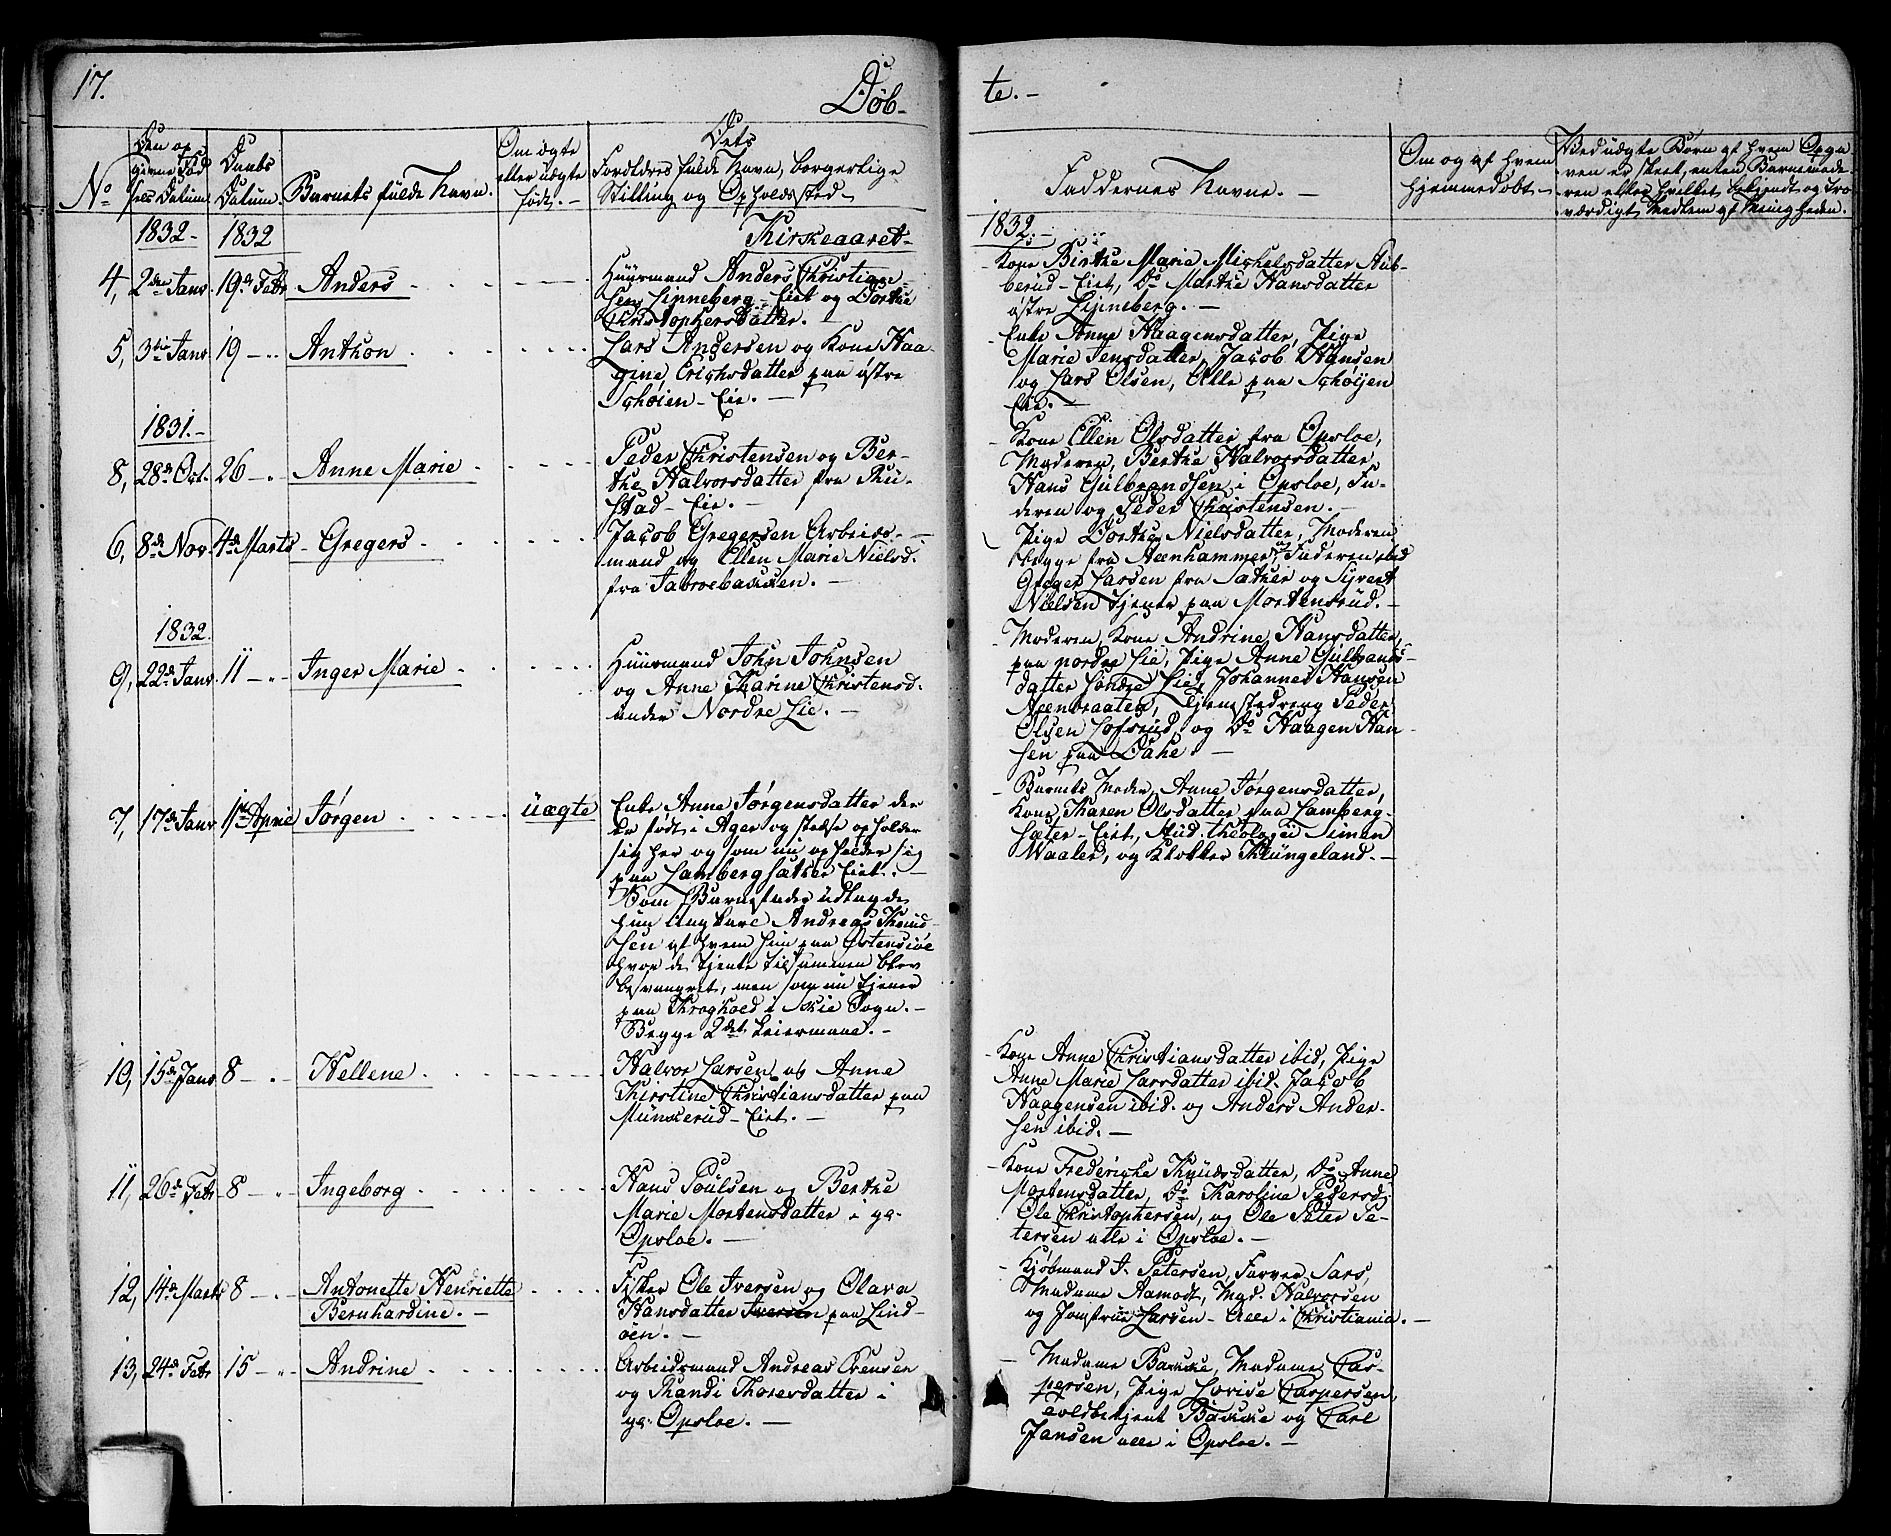 17.
Døb-
te.-
No
Den op
givne Fød
sels Datum
Daabs
Datum.
Barnets fulde Navn.
Om ægte
eller uægte
født.-
Dets
Forældres fulde Navn, borgerlige
Stilling og Opholdssted
Faddernes Navne.-
Om og af hvem
hjemmedøbt.-
Ved uægte Børn af hvem Opga
ven er skeet, enten Barnemode-
ren eller hvilket bekjendt og tro
værdigt Medlem af Menigheden.
1832-
1832
Kirkeaaret-
1832.-
4, 2den Janr 19de Febr Anders
Huusmand Anders Christian-
sen Linneberg-Eiet og Dorthe
Christophersdatter.-
- Kone Birthe Marie Michelsdatter Aub-
berud-Eiet, Do Marthe Hansdatter
østre Linneberg.-
5, 3die Janr 19 -„- Anthon
Lars Andersen og Kone Haa-
gine Erichsdatter paa østre
Schøien-Eie.-
- Enke Anne Haagensdatter, Pige
Marie Jensdatter, Jacob Hansen
og Lars Olsen, Alle paa Schøijen
Eie.-
1831.-
8, 28de Oct. 26 -„- Anne Marie
Peder Christensen og Ber-
the Halvorsdatter fra Ru-
stad-Eie.-
- Kone Ellen Olsdatter fra Opsloe,
Moderen, Berthe Halvorsdatter,
Hans Gulbrandsen i Opsloe, Fa-
deren og Peder Christensen.-
6, 8de Nov. 4de Marts - Gregers
Jacob Gregersen Arbeids-
mand og Ellen Marie Nielsd.
fra Jabroebakken.-
Pige Dorthe Nielsdatter, Moderen
begge fra Steenhammer og Faderen ibid
Greger Larsen fra Sæther og Syvert
Nielsen tjener paa Mortensrud.-
1832.
9, 22de Janr. 11 -„- Inger Marie
Huusmand John Johnsen
og Anne Karine Christensd.
under Nordre Lie.-
- Moderen, Kone Andrine Hansdatter,
paa nordre Lie, Pige Anne Gulbrands-
datter søndre Lie, Johannes Hansen
Steenbraaten, Tjenestedreng Peder
Olsen Lofsrud, og Do Haagen Han-
sen paa Dahl.-
7, 17de Janr 1ste April Jørgen
uægte
Enke Anne Jørgensdatter der
er født i Ager og stedse opholder
sig her og som nu opholder sig
paa Lambergsæther Eiet.-
Som Barnefader udlagde
hun Ungkarl Andreas Knud-
sen af hvem hun paa Østensiøe
hvor de tjente tilsammen blev
besvangret, men som nu tjener
paa Kroghoed i Skie Sogn.-
Begge 2det Leiermaal.-
- Barnets Moder, Anne Jørgensdatter,
Kone Karen Olsdatter paa Lamberg-
sæter-Eiet, Stud. theologiæ Simen
Waaler, og Klokker Klungeland.-
10, 15de Janr 8 -„- Hellene
Halvor Larsen og Anne
Kirstine Christiansdatter paa
Munkerud-Eiet.-
- Kone Anne Christiansdatter ibid, Pige
Anne Marie Larsdatter ibid. Jacob
Haagensen ibid. og Anders Ander-
sen ibid.-
11, 26de Febr 8 -„- Ingeborg
Hans Poulsen og Berthe
Marie Mortensdatter i ga-
Opsloe.-
- Kone Frederiche Knudsdatter, Do Anne
Mortensdatter, Do Karoline Pedersd.
Ole Christophersen, og Ole Peter Pe-
tersen alle i Opsloe.-
12, 14de Marts 8 -„- Antonette Henriette
Bernhardine.-
Fisker Ole Iversen og Olava
Hansdatter Iversen paa Lind-
øen.-
- Kjøbmand J. Petersen, Farver Sars,
Madame Aamodt, Mad. Halvorsen
og Jomfrue Larsen-Alle i Christiania.-
13, 24de Febr 15 -„- Andrine
Arbeidsmand Andreas Svensen
og Randi Thoresdatter i
ga- Opsloe.-
- Madame Bakke, Madame Cas-
persen, Pige Lovise Caspersen,
Toldbetjent Bakke og Carl
Jansen alle i Opsloe.-